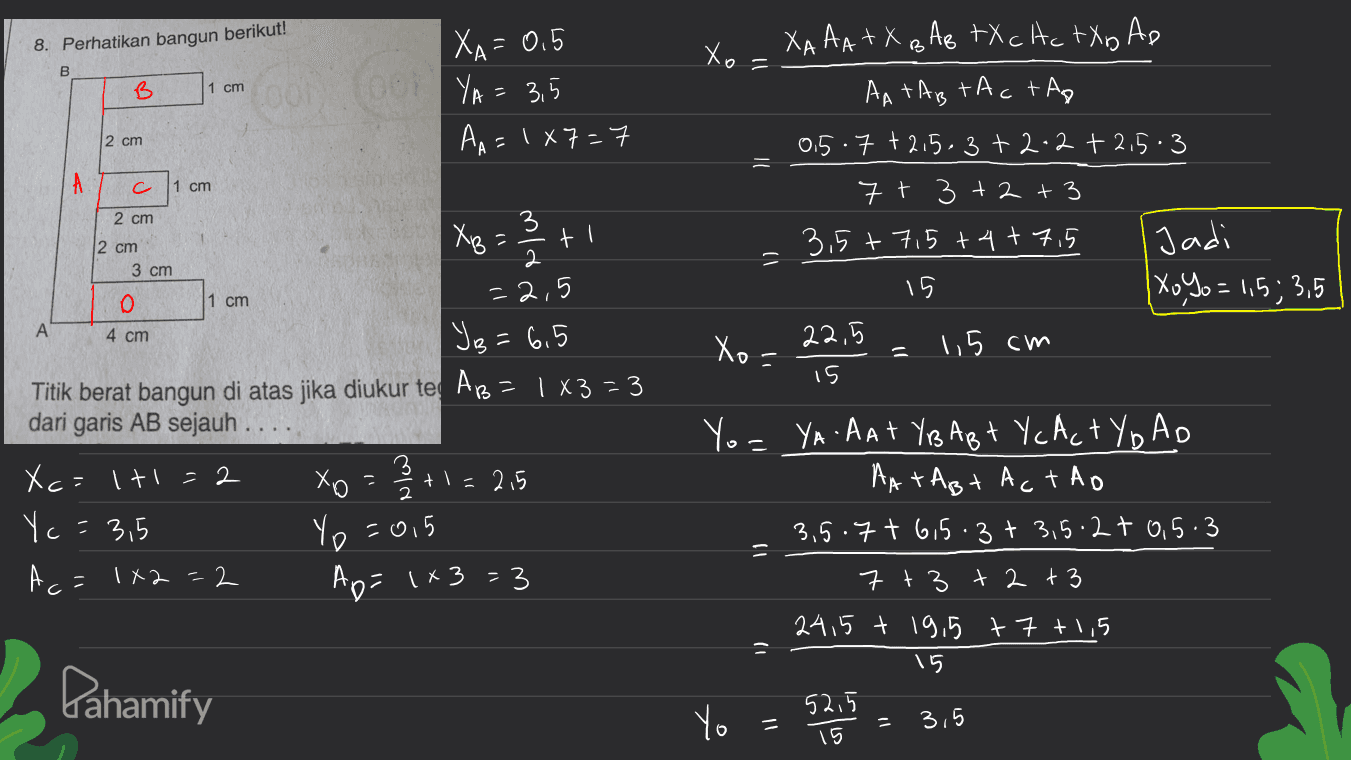 8. Perhatikan bangun berikut!
B
B
1 cm
2 cm
A
C
1 cm
2 cm
2 cm
3 cm
D
1 cm
A
4 cm
Titik berat bangun di atas jika diukur teg
dari garis AB sejauh . . . .
X_A = 0,5
Y_A = 3,5
A_A = 1 x 7 = 7
X_B = 3/2 + 1
= 2,5
Y_B = 6,5
A_B = 1 x 3 = 3
X_C = 1 + 1 = 2
Y_C = 3,5
A_C = 1 x 2 = 2
X_D = 3/2 + 1 = 2,5
Y_D = 0,5
A_D = 1 x 3 = 3
X_0 = X_A A_A + X_B A_B + X_C A_C + X_D A_D
A_A + A_B + A_C + A_D
= 0,5 · 7 + 2,5 · 3 + 2 · 2 + 2,5 · 3
7 + 3 + 2 + 3
= 3,5 + 7,5 + 4 + 7,5
15
X_0 = 22,5/15 = 1,5 cm
Y_0 = Y_A · A_A + Y_B A_B + Y_C A_C + Y_D A_D
A_A + A_B + A_C + A_D
= 3,5 · 7 + 6,5 · 3 + 3,5 · 2 + 0,5 · 3
7 + 3 + 2 + 3
= 24,5 + 19,5 + 7 + 1,5
15
Y_0 = 52,5/15 = 3,5
Jadi
X_0, Y_0 = 1,5 ; 3,5
Pahamify